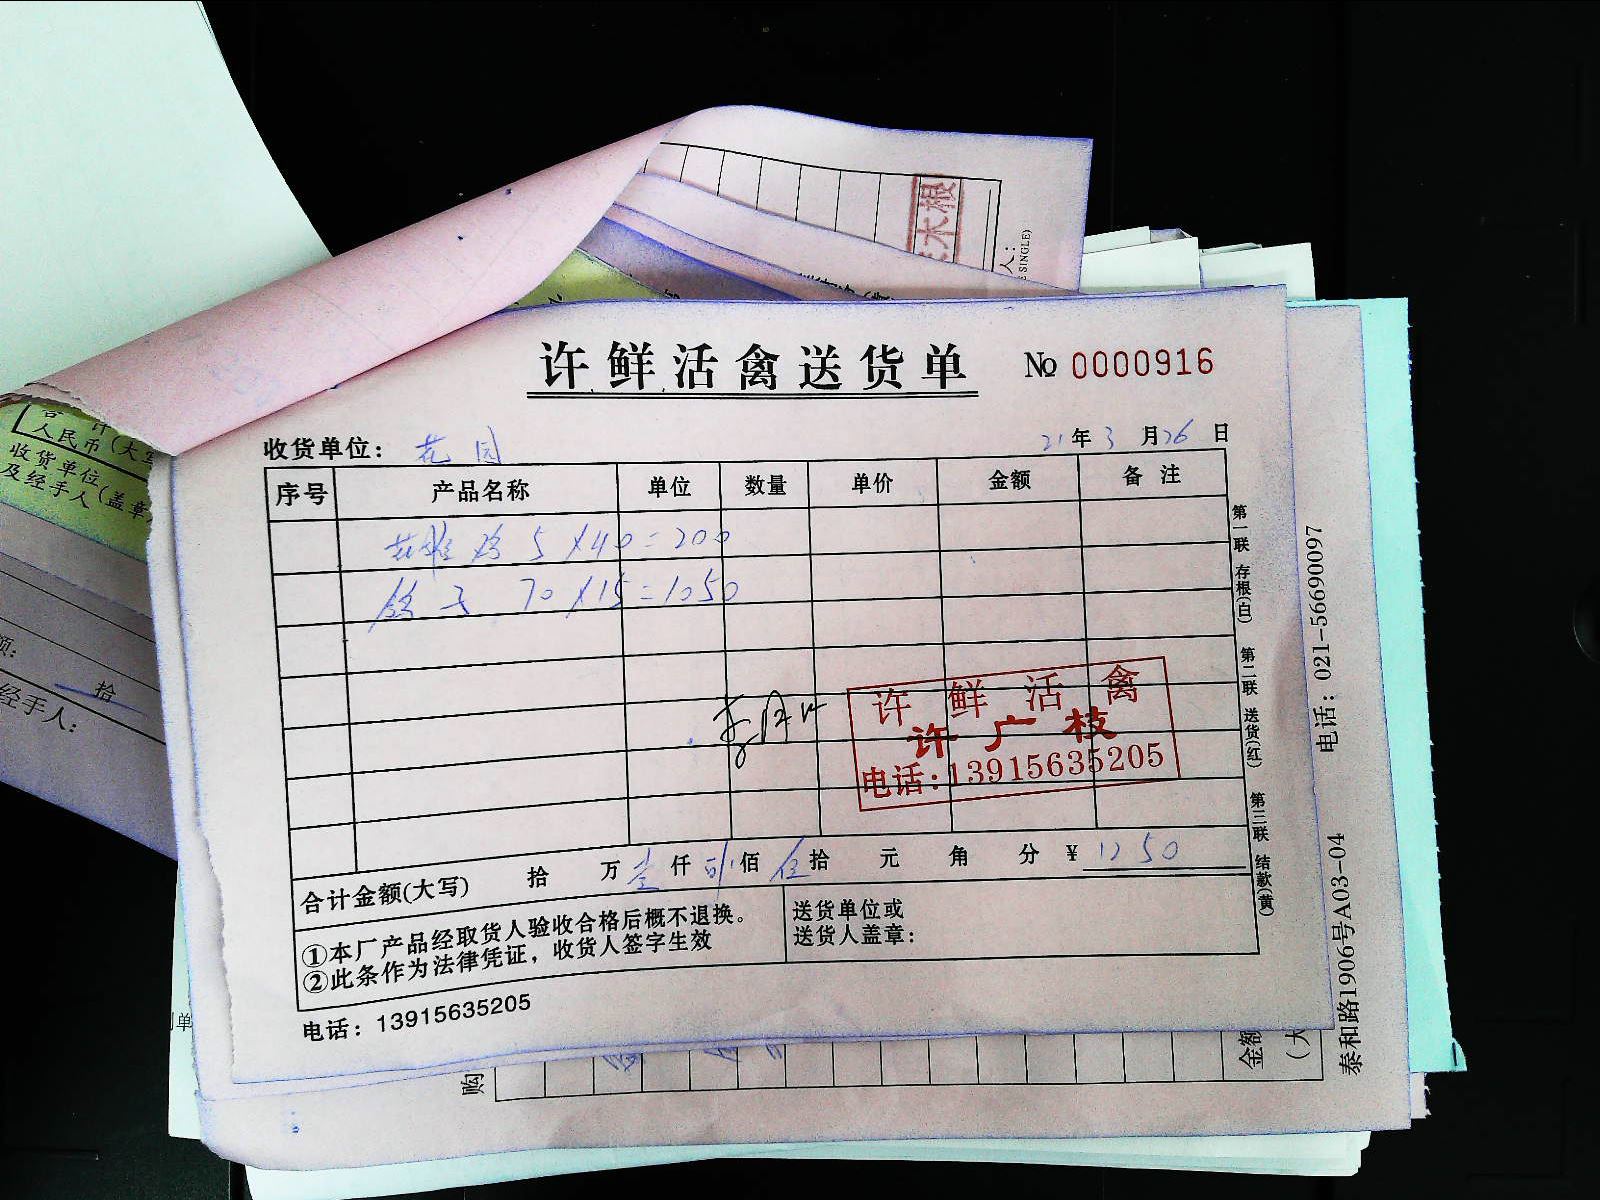 许鲜活禽送货单 № 0000916
收货单位： 花园 21年3月26日
序号 产品名称 单位 数量 单价 金额 备注
鸡 5×40=200
鸽子 70×15=1050
许鲜活禽
许广枝
电话:13915635205
合计金额(大写) 拾 万壹仟 佰伍拾 元 角 分 ¥1250
①本厂产品经取货人验收合格后概不退换。
②此条作为法律凭证，收货人签字生效
送货单位或
送货人盖章：
电话：13915635205
第一联 存根(白) 第二联 送货(红) 第三联 结款(黄)
泰和路1906号A03-04 电话：021-56690097
人民币(大写
收货单位(盖章
及经手人
拾
经手人:
木根
SINGLE)
购
金额
(大